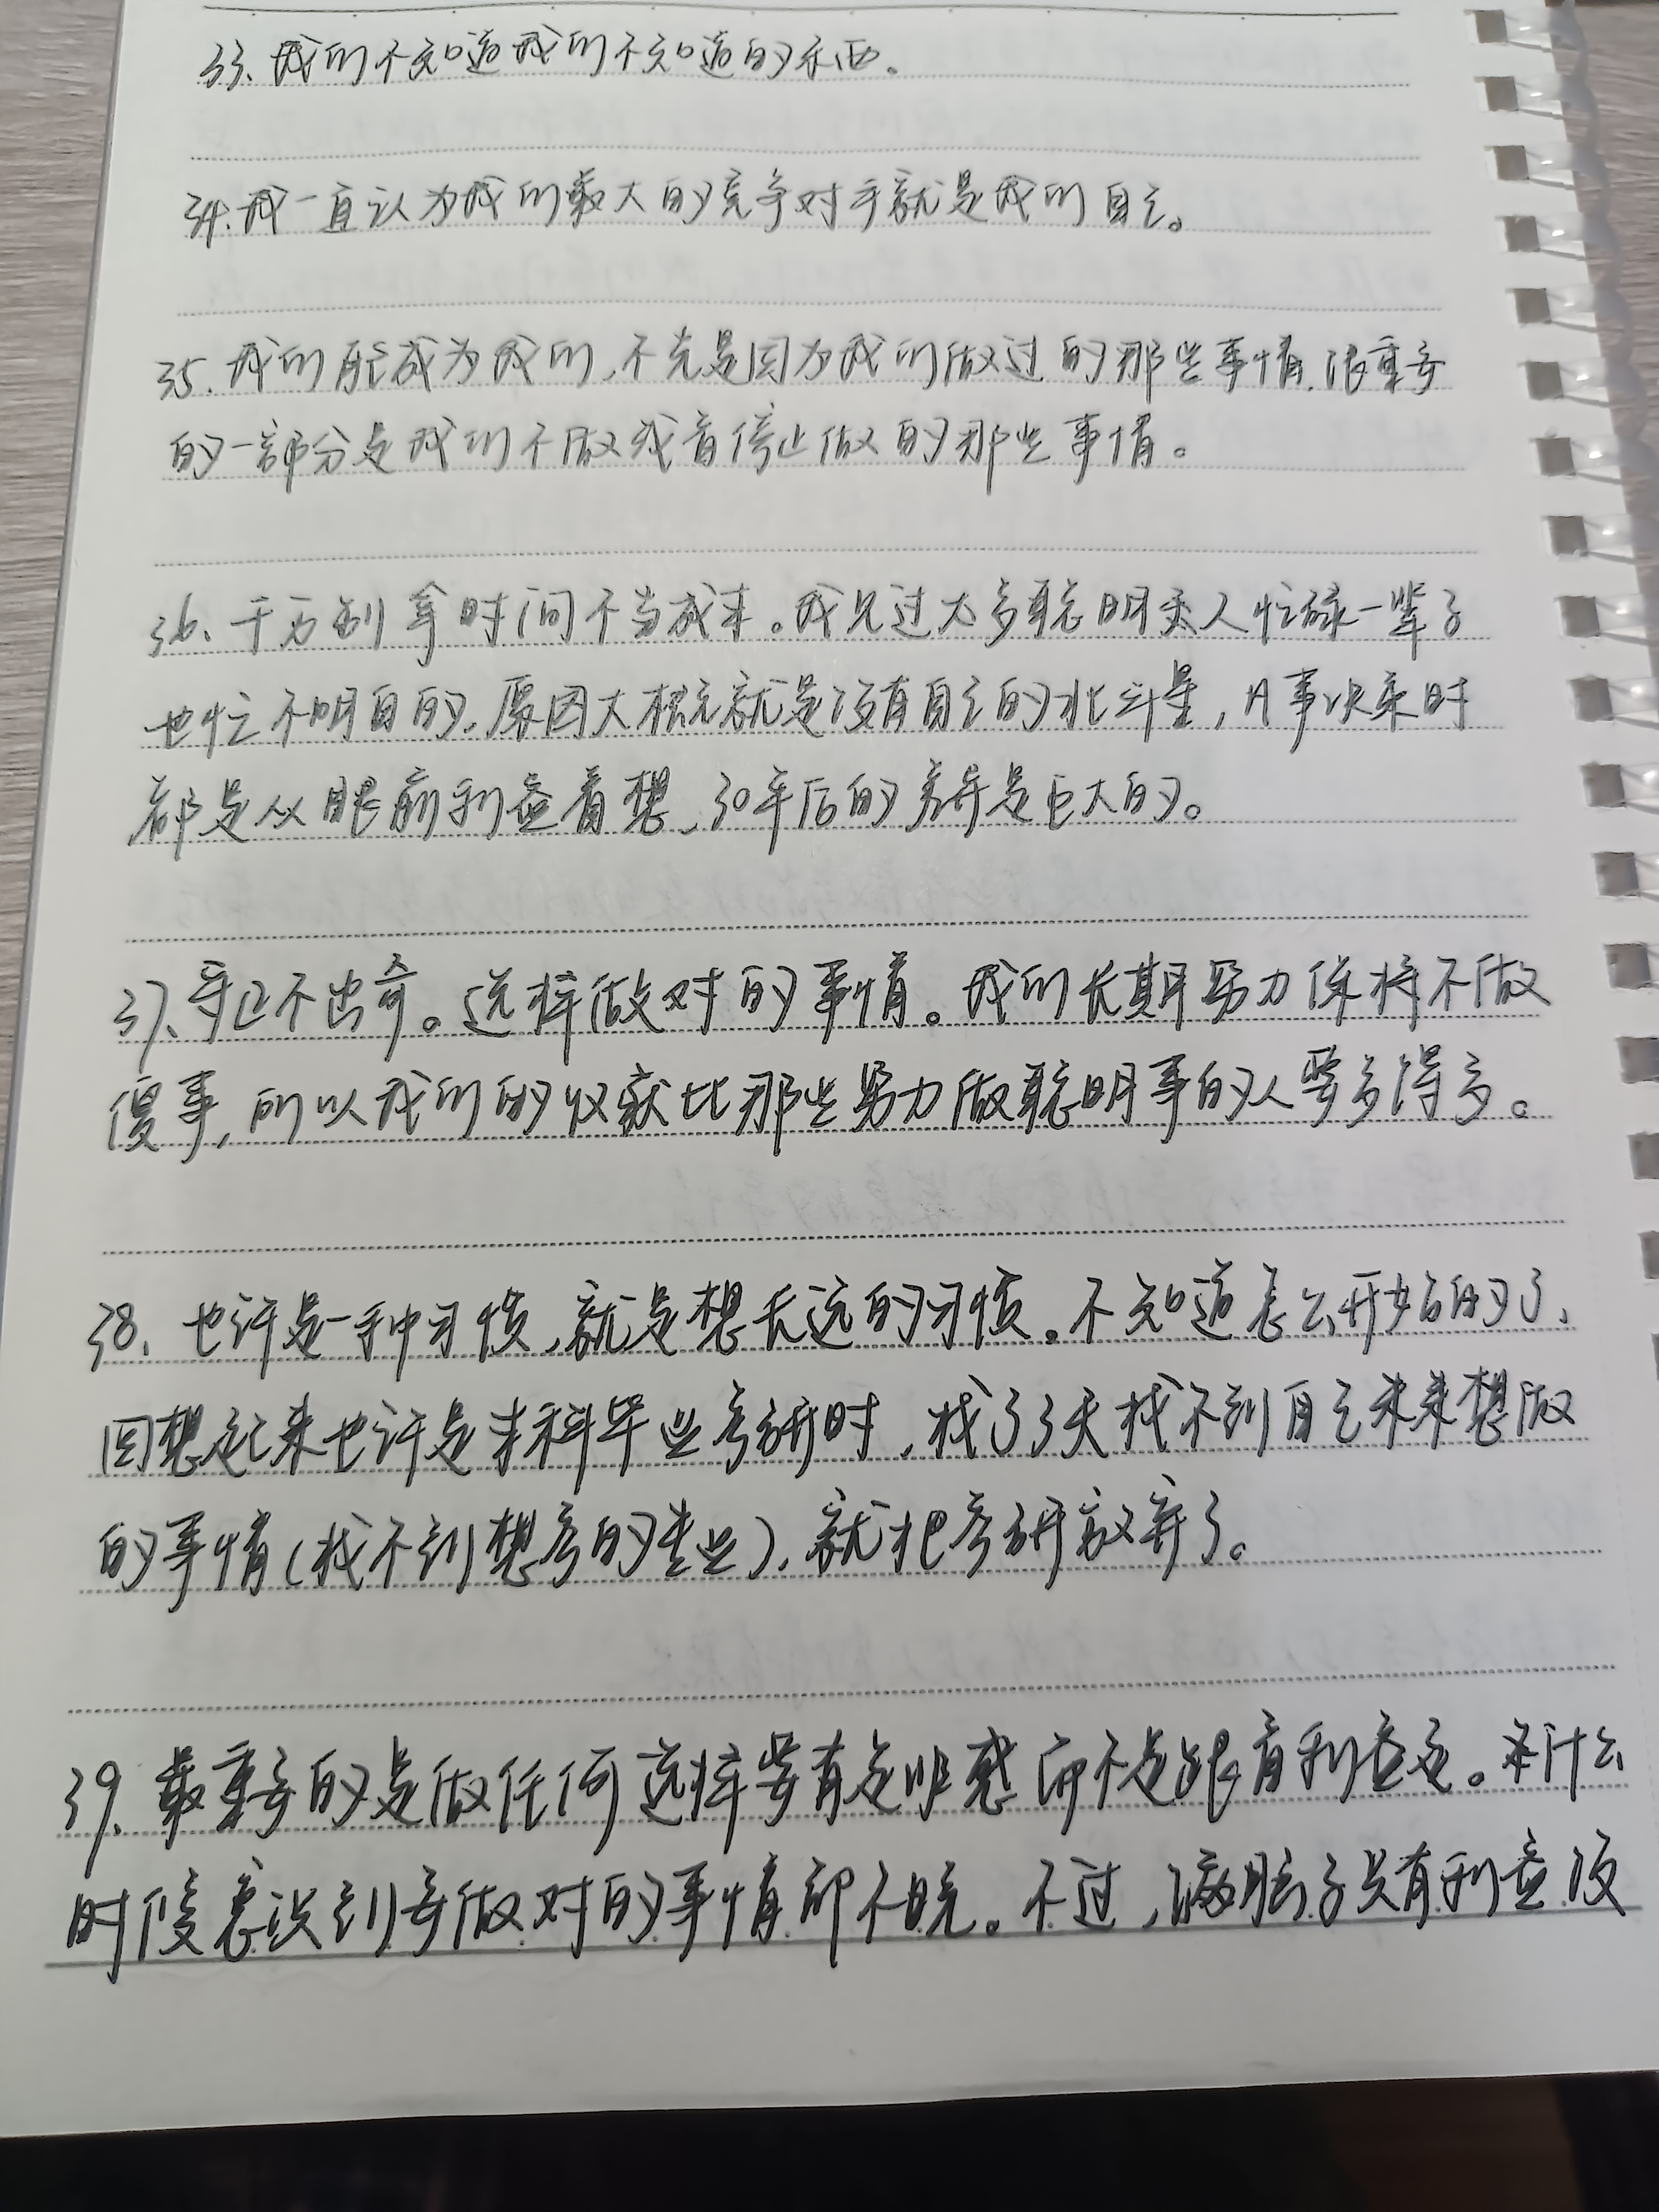 33、我们不知道我们不知道的东西。
34、我一直认为我们最大的竞争对手就是我们自己。
35、我们能成为我们,不光是因为我们做过的那些事情,很重要
的一部分是我们不做或者停止做的那些事情。
36、千万别拿时间不当成本。我见过太多聪明类人忙碌一辈子
也忙不明白的,原因大概就是没有自己的北斗星,凡事决策时
都是从眼前利益着想、30年后的差异是巨大的。
37、守正不出奇。选择做对的事情。我们长期努力保持不做
傻事,所以我们的收获比那些努力做聪明事的人要多得多。
38、也许是一种习惯,就是想长远的习惯。不知道怎么开始的了、
回想起来也许是本科毕业考研时,找了3天找不到自己未来想做
的事情(找不到想考的专业),就把考研放弃了。
39、最重要的是做任何选择要有是非感而不是跟着利益走。不什么
时候意识到要做对的事情都不晚。不过,满脑子只有利益没